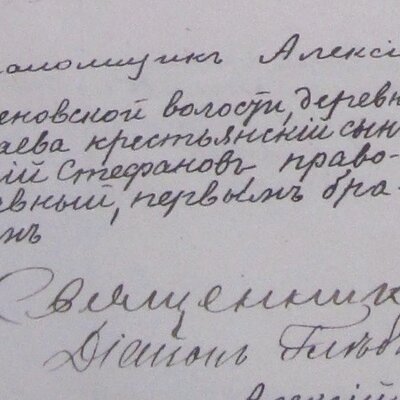 саломщикъ Алексі
еновской волости, деревн
аева крестьянскій сын
ій Стефановъ, право-
авный, первымъ бра-
мъ
Священник
Діаконъ Глѣб
Алексій